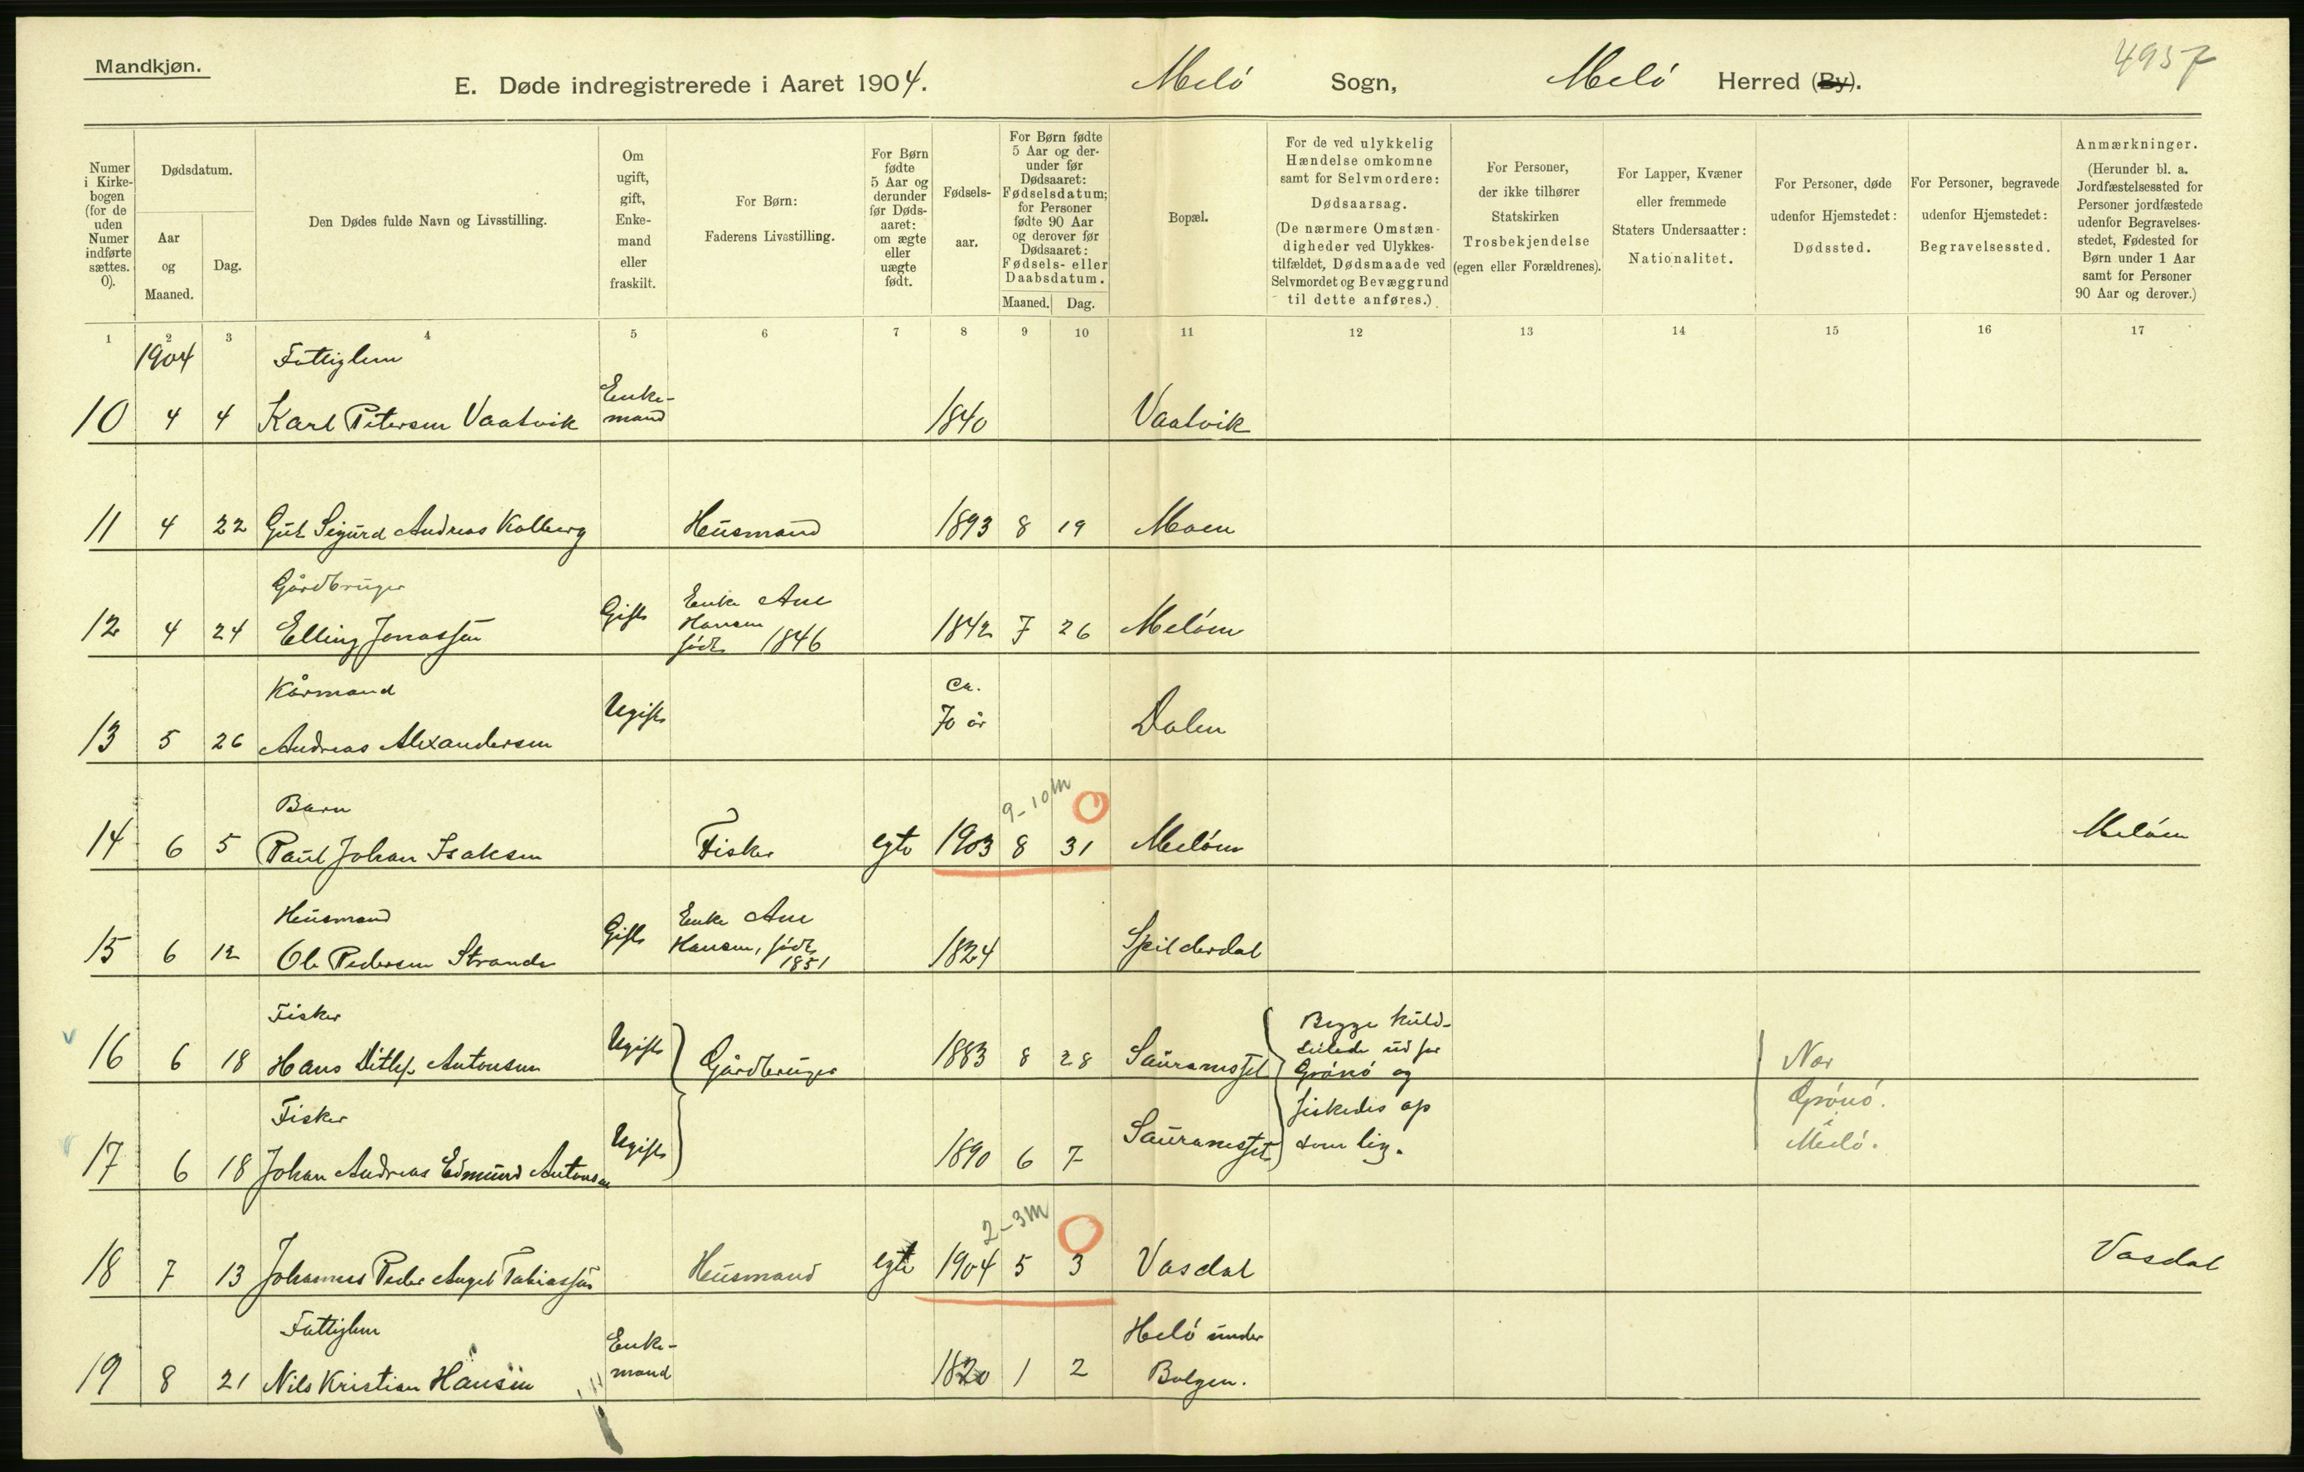 Mandkjøn.
4957
E. Døde indregistrerede i Aaret 1904. Melö Sogn, Melö Herred (By).
Numer i Kirkebogen (for de uden Numer indførte sættes. 0).
Dødsdatum.
Aar og Maaned.
Dag.
Den Dødes fulde Navn og Livsstilling.
Om ugift, gift, Enkemand eller fraskilt.
For Børn: Faderens Livsstilling.
For Børn fødte 5 Aar og derunder før Dødsaaret: om ægte eller uægte født.
Fødselsaar.
For Børn fødte 5 Aar og derunder før Dødsaaret: Fødselsdatum; for Personer fødte 90 Aar og derover før Dødsaaret: Fødsels- eller Daabsdatum.
Maaned. Dag.
Bopæl.
For de ved ulykkelig Hændelse omkomne samt for Selvmordere: Dødsaarsag. (De nærmere Omstændigheder ved Ulykkestilfældet, Dødsmaade ved Selvmordet og Bevæggrund til dette anføres.)
For Personer, der ikke tilhører Statskirken Trosbekjendelse (egen eller Forældrenes).
For Lapper, Kvæner eller fremmede Staters Undersaatter: Nationalitet.
For Personer, døde udenfor Hjemstedet: Dødssted.
For Personer, begravede udenfor Hjemstedet: Begravelsessted.
Anmærkninger. (Herunder bl. a. Jordfæstelsessted for Personer jordfæstede udenfor Begravelsesstedet, Fødested for Børn under 1 Aar samt for Personer 90 Aar og derover.)
1 2 3 4 5 6 7 8 9 10 11 12 13 14 15 16 17
1904 Fattiglem
10 4 4 Karl Petersen Vaatvik Enkemand 1840 Vaatvik
11 4 22 Gut Sigurd Andreas Kolberg Husmand 1893 8 19 Moen
Gårdbruger
12 4 24 Elling Jonassen Gift Enke Ane Hansen født 1846 1842 7 26 Melöen
Kårmand
13 5 26 Andreas Alexandersen Ugift ca. 70 år Dalen
Barn 9-10 m
14 6 5 Paul Johan Isaksen Fisker egte 1903 8 31 Melöen Melöen
Husmand
15 6 12 Ole Pedersen Strand Gift Enke Ane Hansen, født 1851 1824 Spilderdal
Fisker
16 6 18 Hans Ditlef Antonsen Ugift Gårdbruger 1883 8 28 Sauranesset Begge kuldseilede ud for Grönö og fiskedes op som lig. Nær Grönö. Melö.
Fisker
17 6 18 Johan Andreas Edmund Antonsen Ugift 1890 6 7 Sauranesset
2-3 m
18 7 13 Johannes Peder Angel Tobiassen Husmand egte 1904 5 3 Vasdal Vasdal
Fattiglem
19 8 21 Nils Kristian Hansen Enkemand 1820 1 2 Helö under Bolgen.